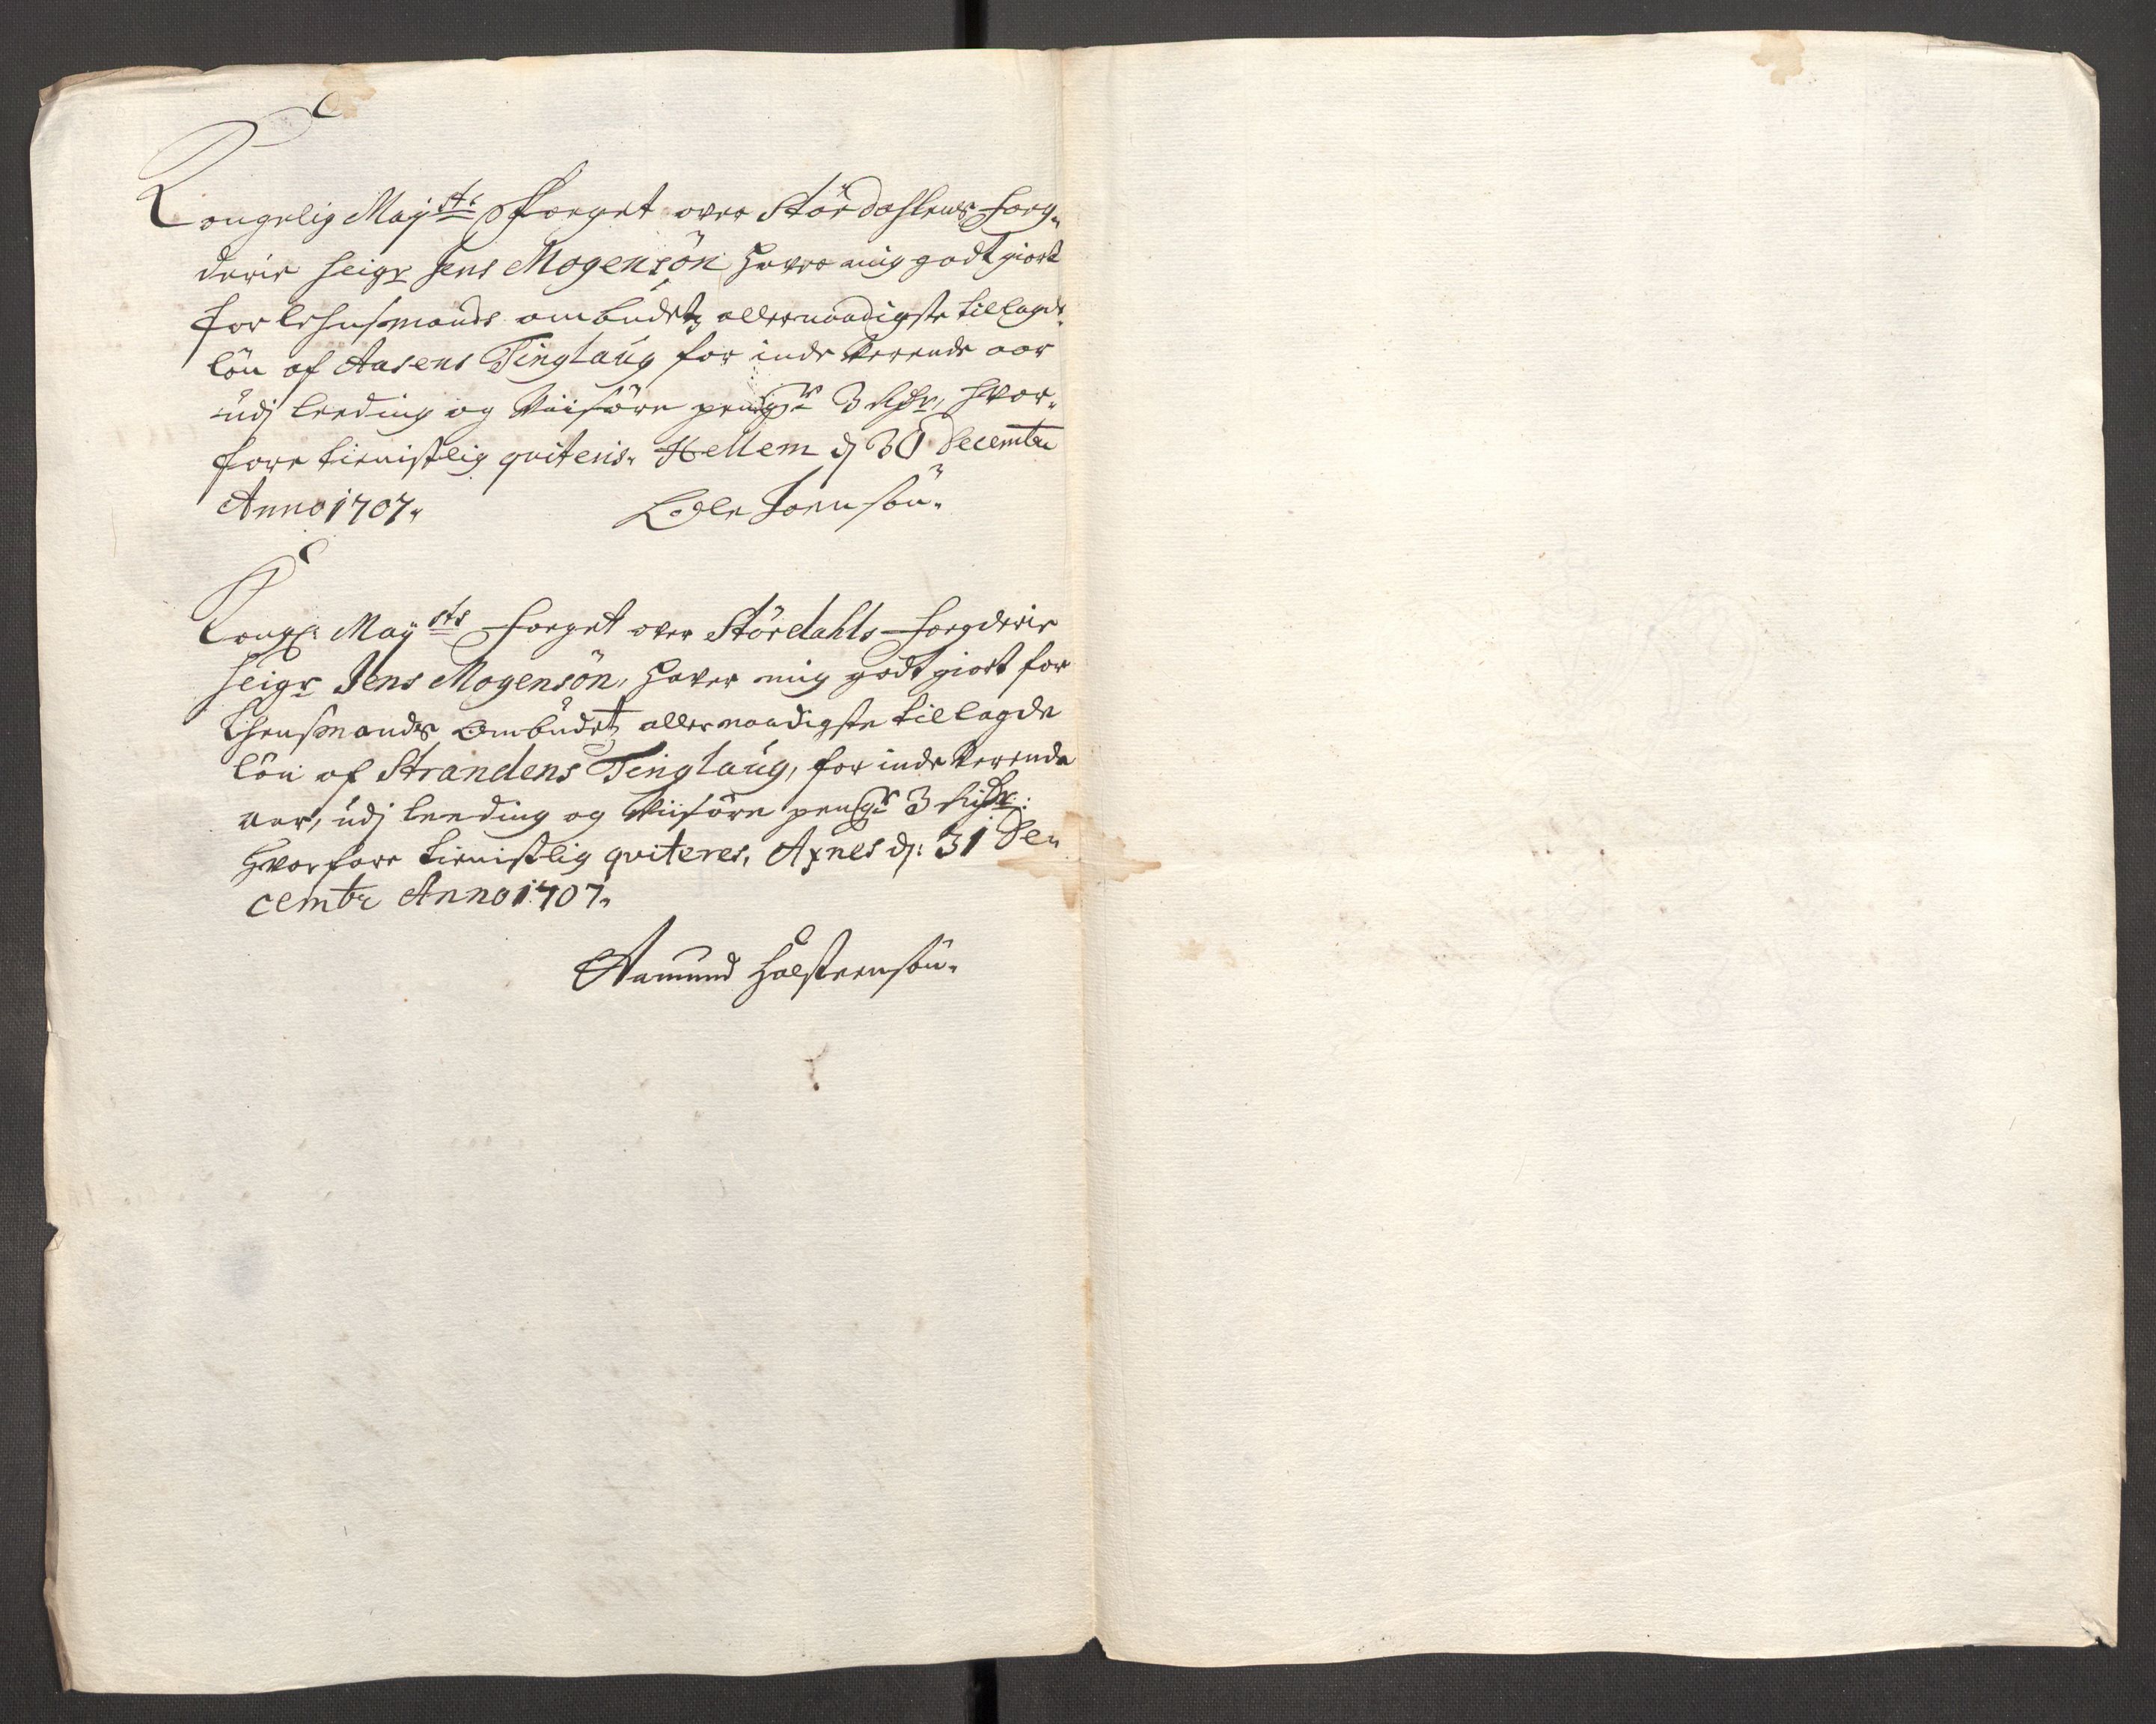 Kongelig Mayst: Foeget over Stördahlens foeg„
derie Seigr Jens Mogensön haver mig godtgiort
for lehnsmands ombudetz allernaadigste tillagde
lön af Aasens Tinglaug for inde verende aar
udj leeding og Viisöre penge 3 Rdr, hvor„
fore tienistlig qviteris„ Hellem dj 30 Decembr
Anno 1707„ Ole Joensön„
Kongl: Maysts foeget over Stördahls foegderie
Seigr Jens Mogensön, haver mig godtgiort for
Lhensmands Ombudetz allernaadigste tillagde
lön af Strandens Tinglaug, for inde verende
aar, udj leeding og Viisöre penge 3 Rixdr:
hvorfore tienistlig qviteres, Axnes dj: 31 De„
cembr Anno 1707„
Aamund Holsteensön„